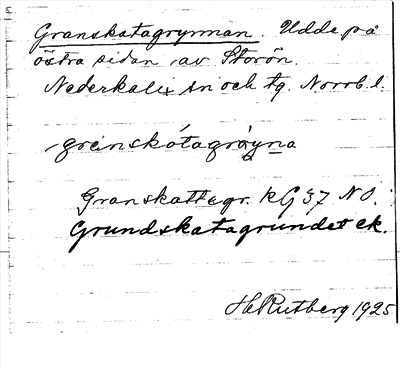 Granskatagrynnan. Udde på
östra sidan av Storön.
Nederkalix sn och tg. Norrb. l.
Granskattegr. kG 37 NO.
Grundskatagrundet ek.
H Rutberg 1925